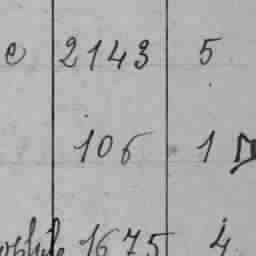 e 2143 5
106 1
1675 4